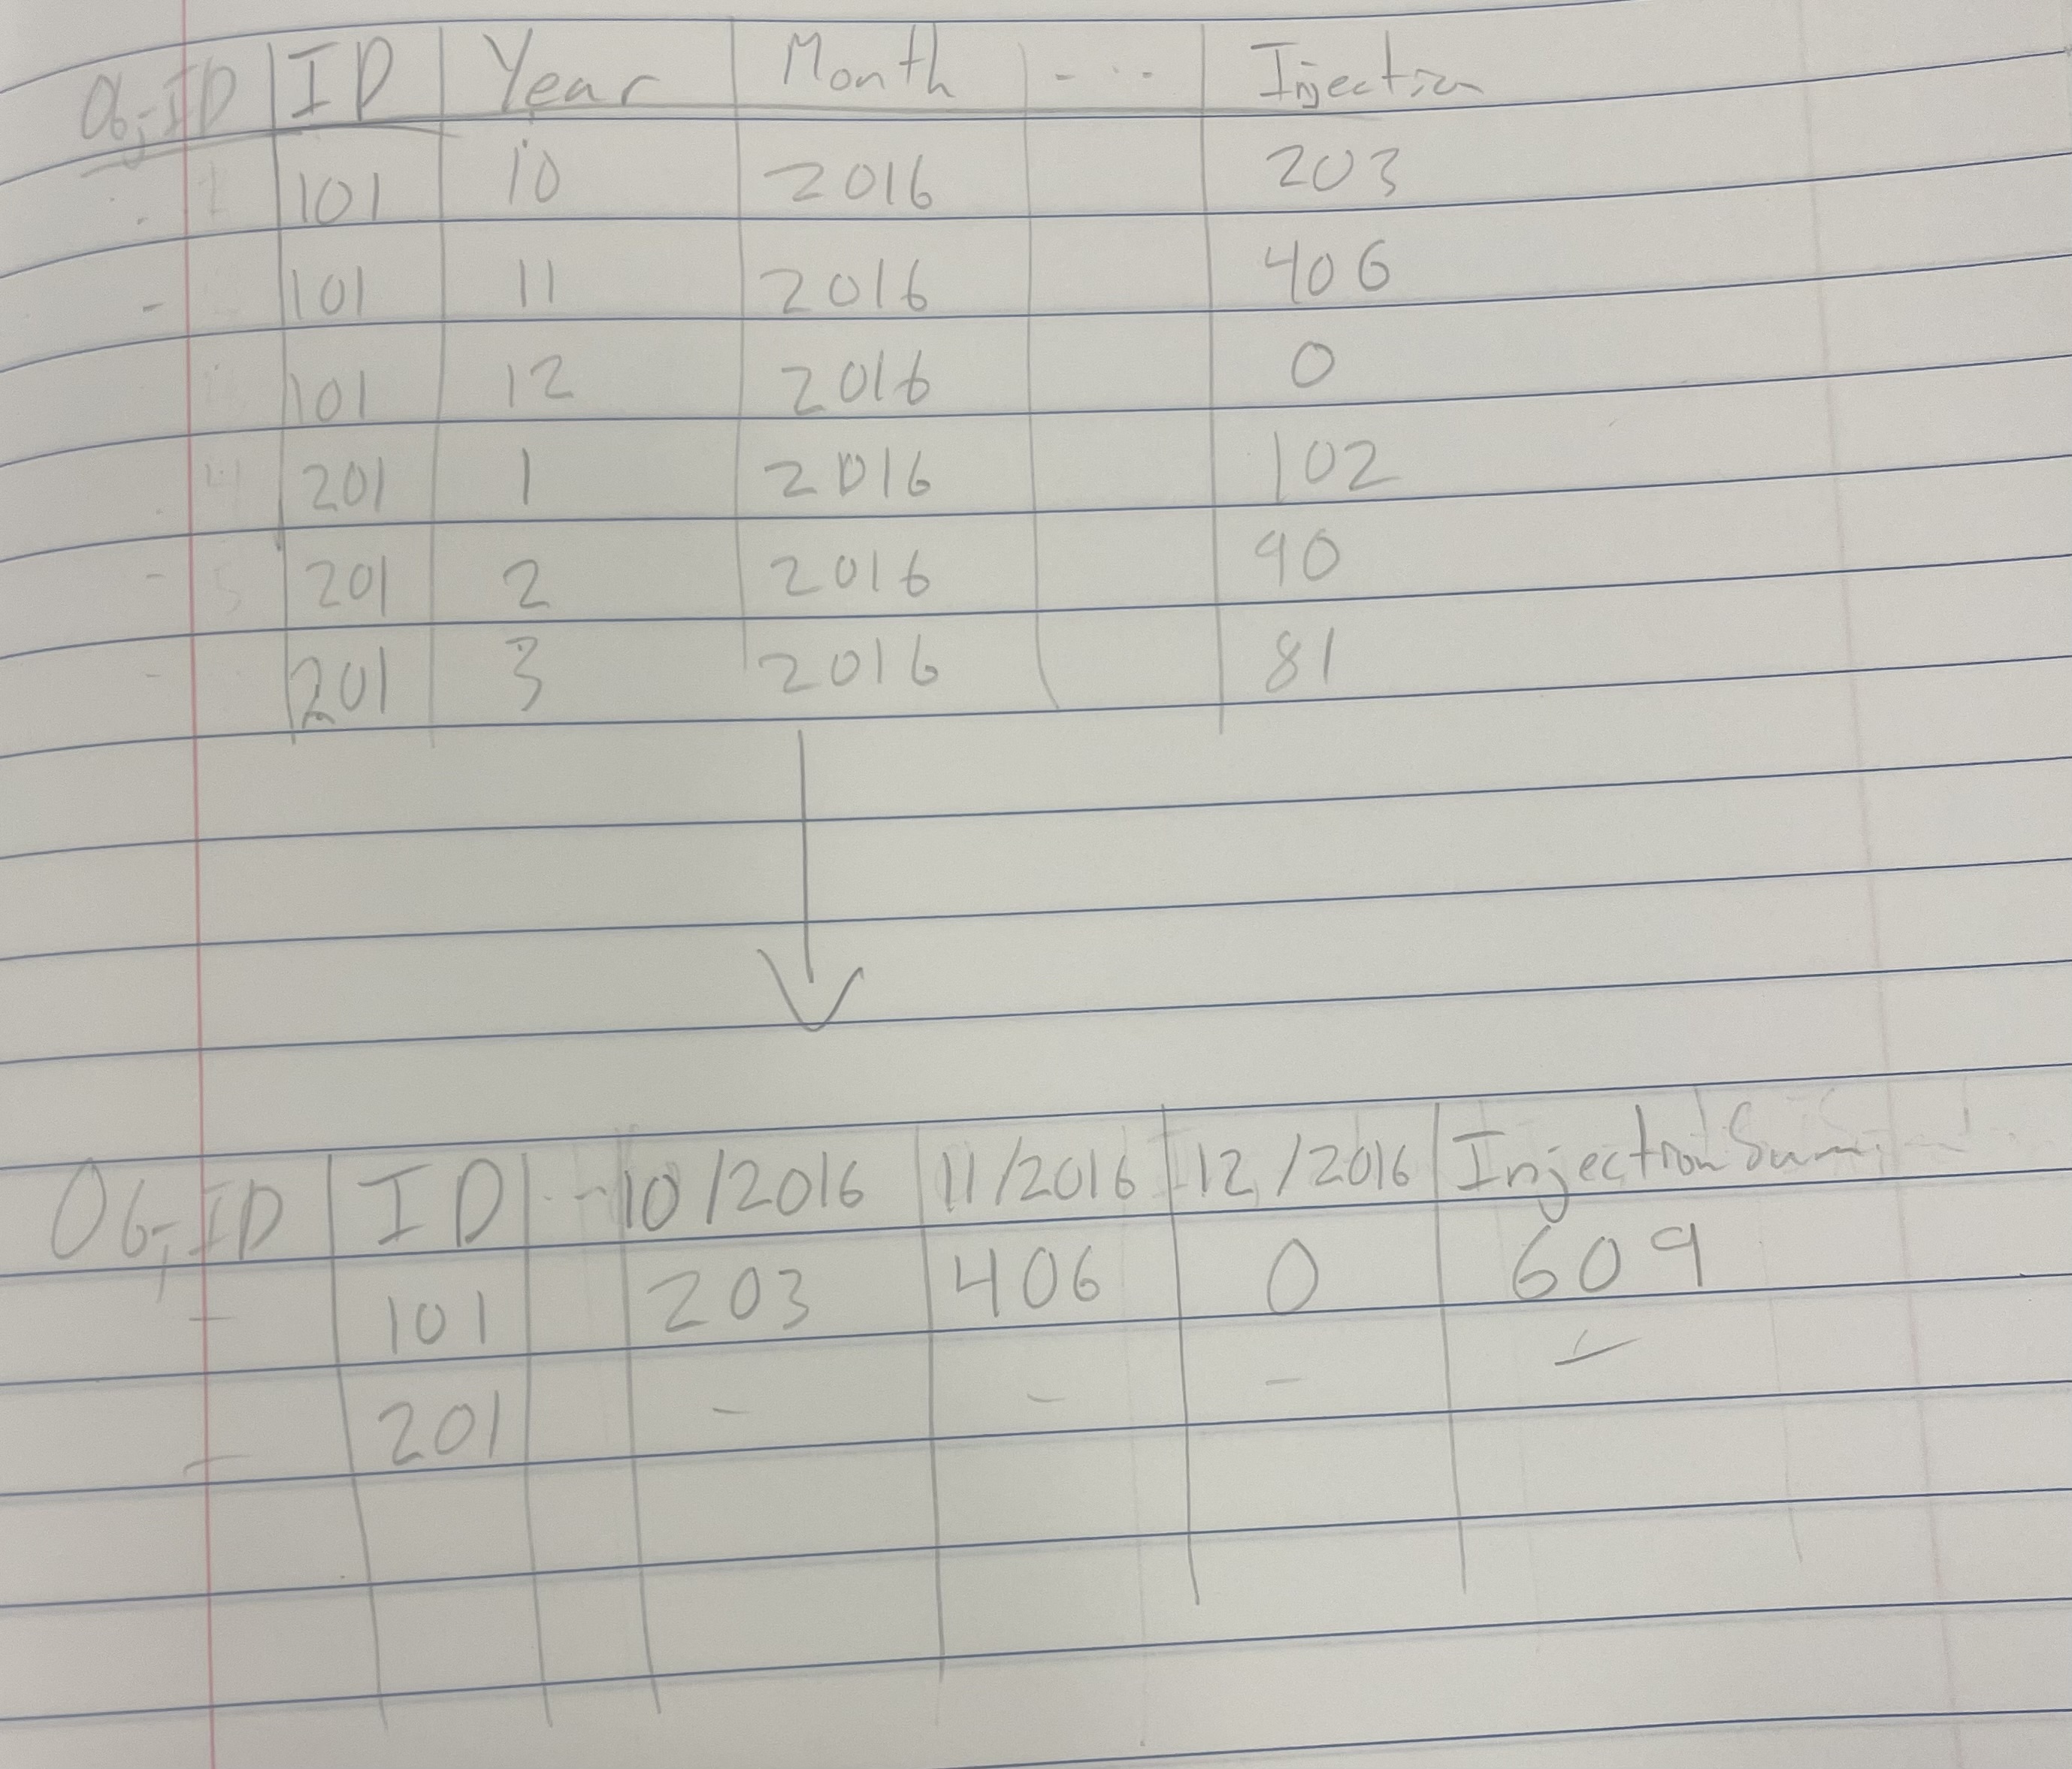 Obj ID ID Year Month - ... Injection
1 101 10 2016 203
- 101 11 2016 406
101 12 2016 0
4 201 1 2016 102
- 5 201 2 2016 90
- 201 3 2016 81
Obj ID ID ... 10/2016 11/2016 12/2016 Injection Sum
- 101 203 406 0 609
- 201 - - - -